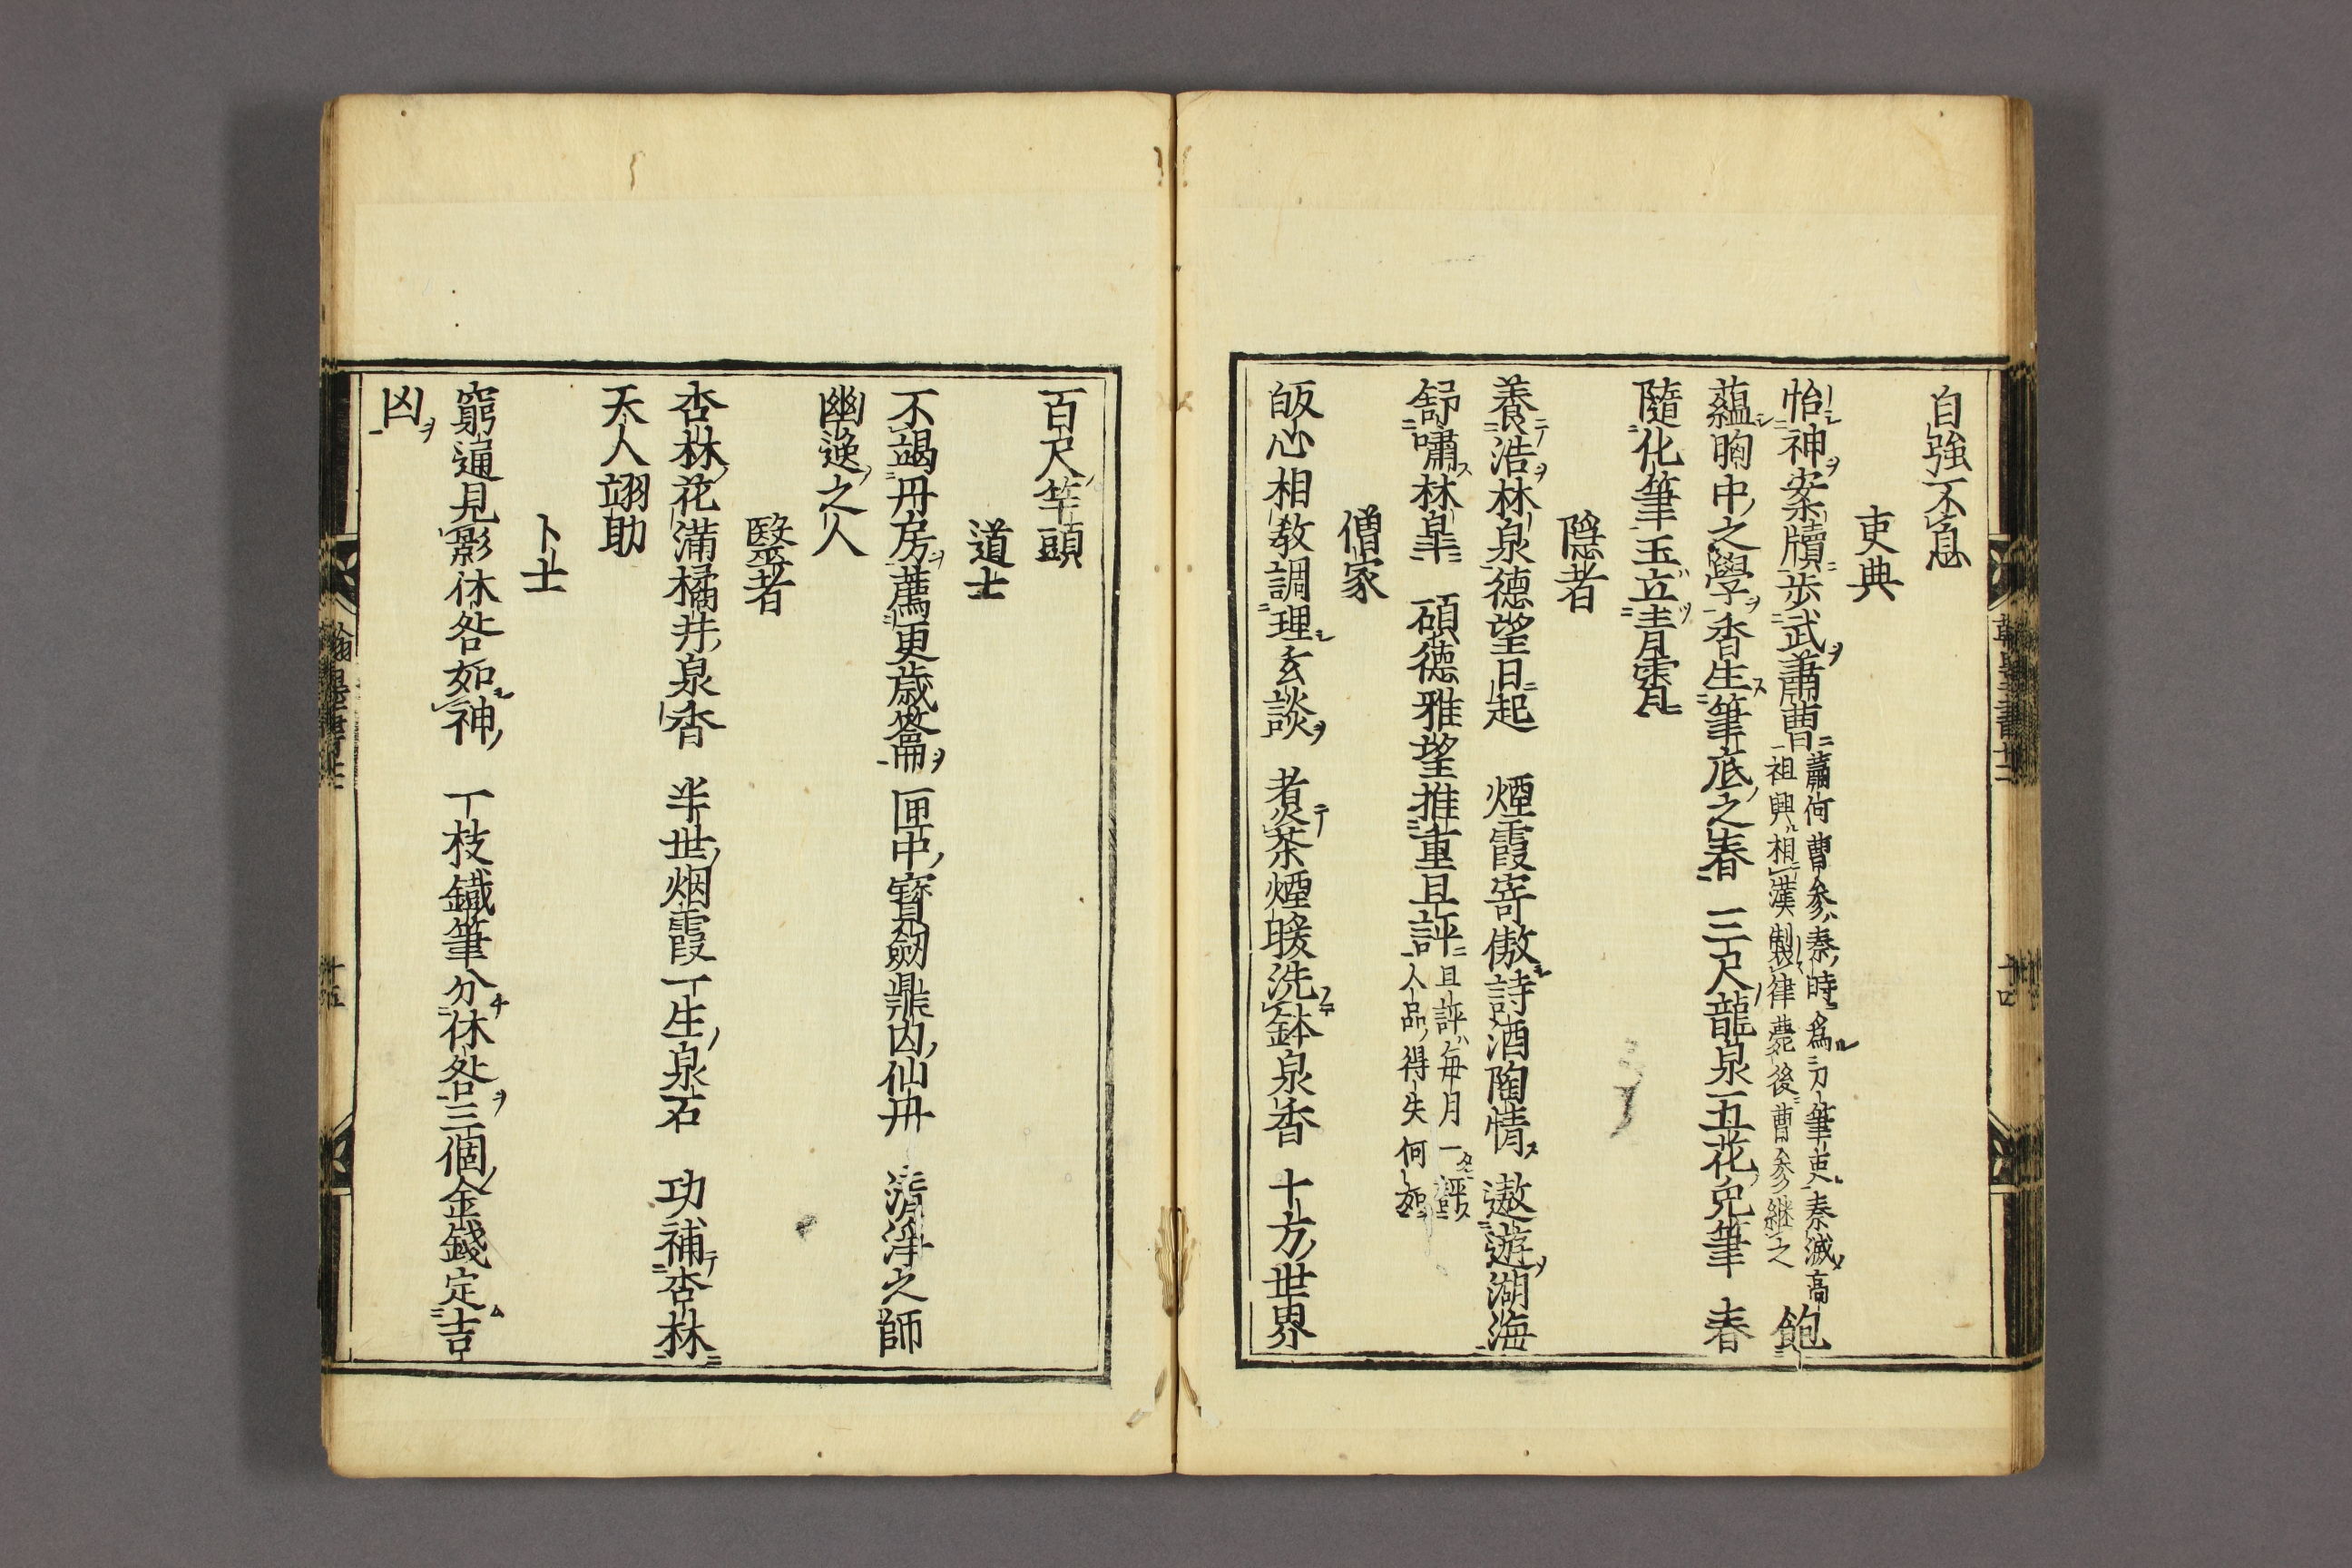 自強不息
吏典
怡神案牘歩武蕭曹 蕭何曹參秦時爲刀筆吏秦滅高
祖興相漢製律薨後曹參継之 飽
蘊胸中之學香生筆底之春 三尺龍泉五花兔筆 春
隨化筆玉立青霄
隠者
養浩林泉德望日起 煙霞寄傲詩酒陶情 遨遊湖海
舒嘯林皐 碩德雅望推重且評 且評每月一評
人品得失何如
僧家
皈心相教調理玄談 煮茶煙暖洗鉢泉香 十方世界
百尺竿頭
道士
不謁丹房薦更歳籥 匣中寶劔鼎内仙丹 清浄之師
幽逸之人
醫者
杏林花滿橘井泉香 半世烟霞一生泉石 功補杏林
天人翊助
卜士
窮通見影休咎如神 一枝鐵筆分休咎三個金錢定吉
凶